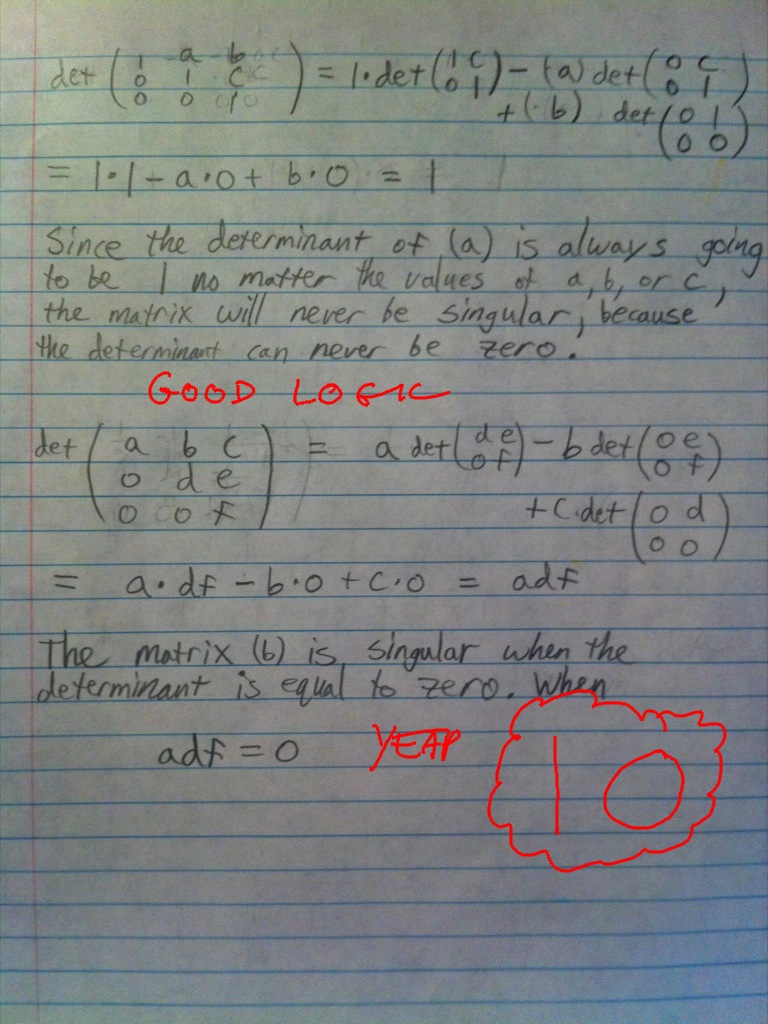 det ( 1 a b ) = 1·det ( 1 c ) - (a) det ( 0 c )
0 1 c 0 1 0 1
0 0 1 + (·b) det ( 0 1 )
0 0
= 1·1 - a·0 + b·0 = 1
Since the determinant of (a) is always going
to be 1 no matter the values of a, b, or c,
the matrix will never be singular, because
the determinant can never be zero.
GOOD LOGIC
det ( a b c ) = a det ( d e ) - b det ( 0 e )
0 d e 0 f 0 f
0 0 f + c·det ( 0 d )
0 0
= a·df - b·0 + c·0 = adf
The matrix (b) is singular when the
determinant is equal to zero. When
adf = 0 YEAP 10